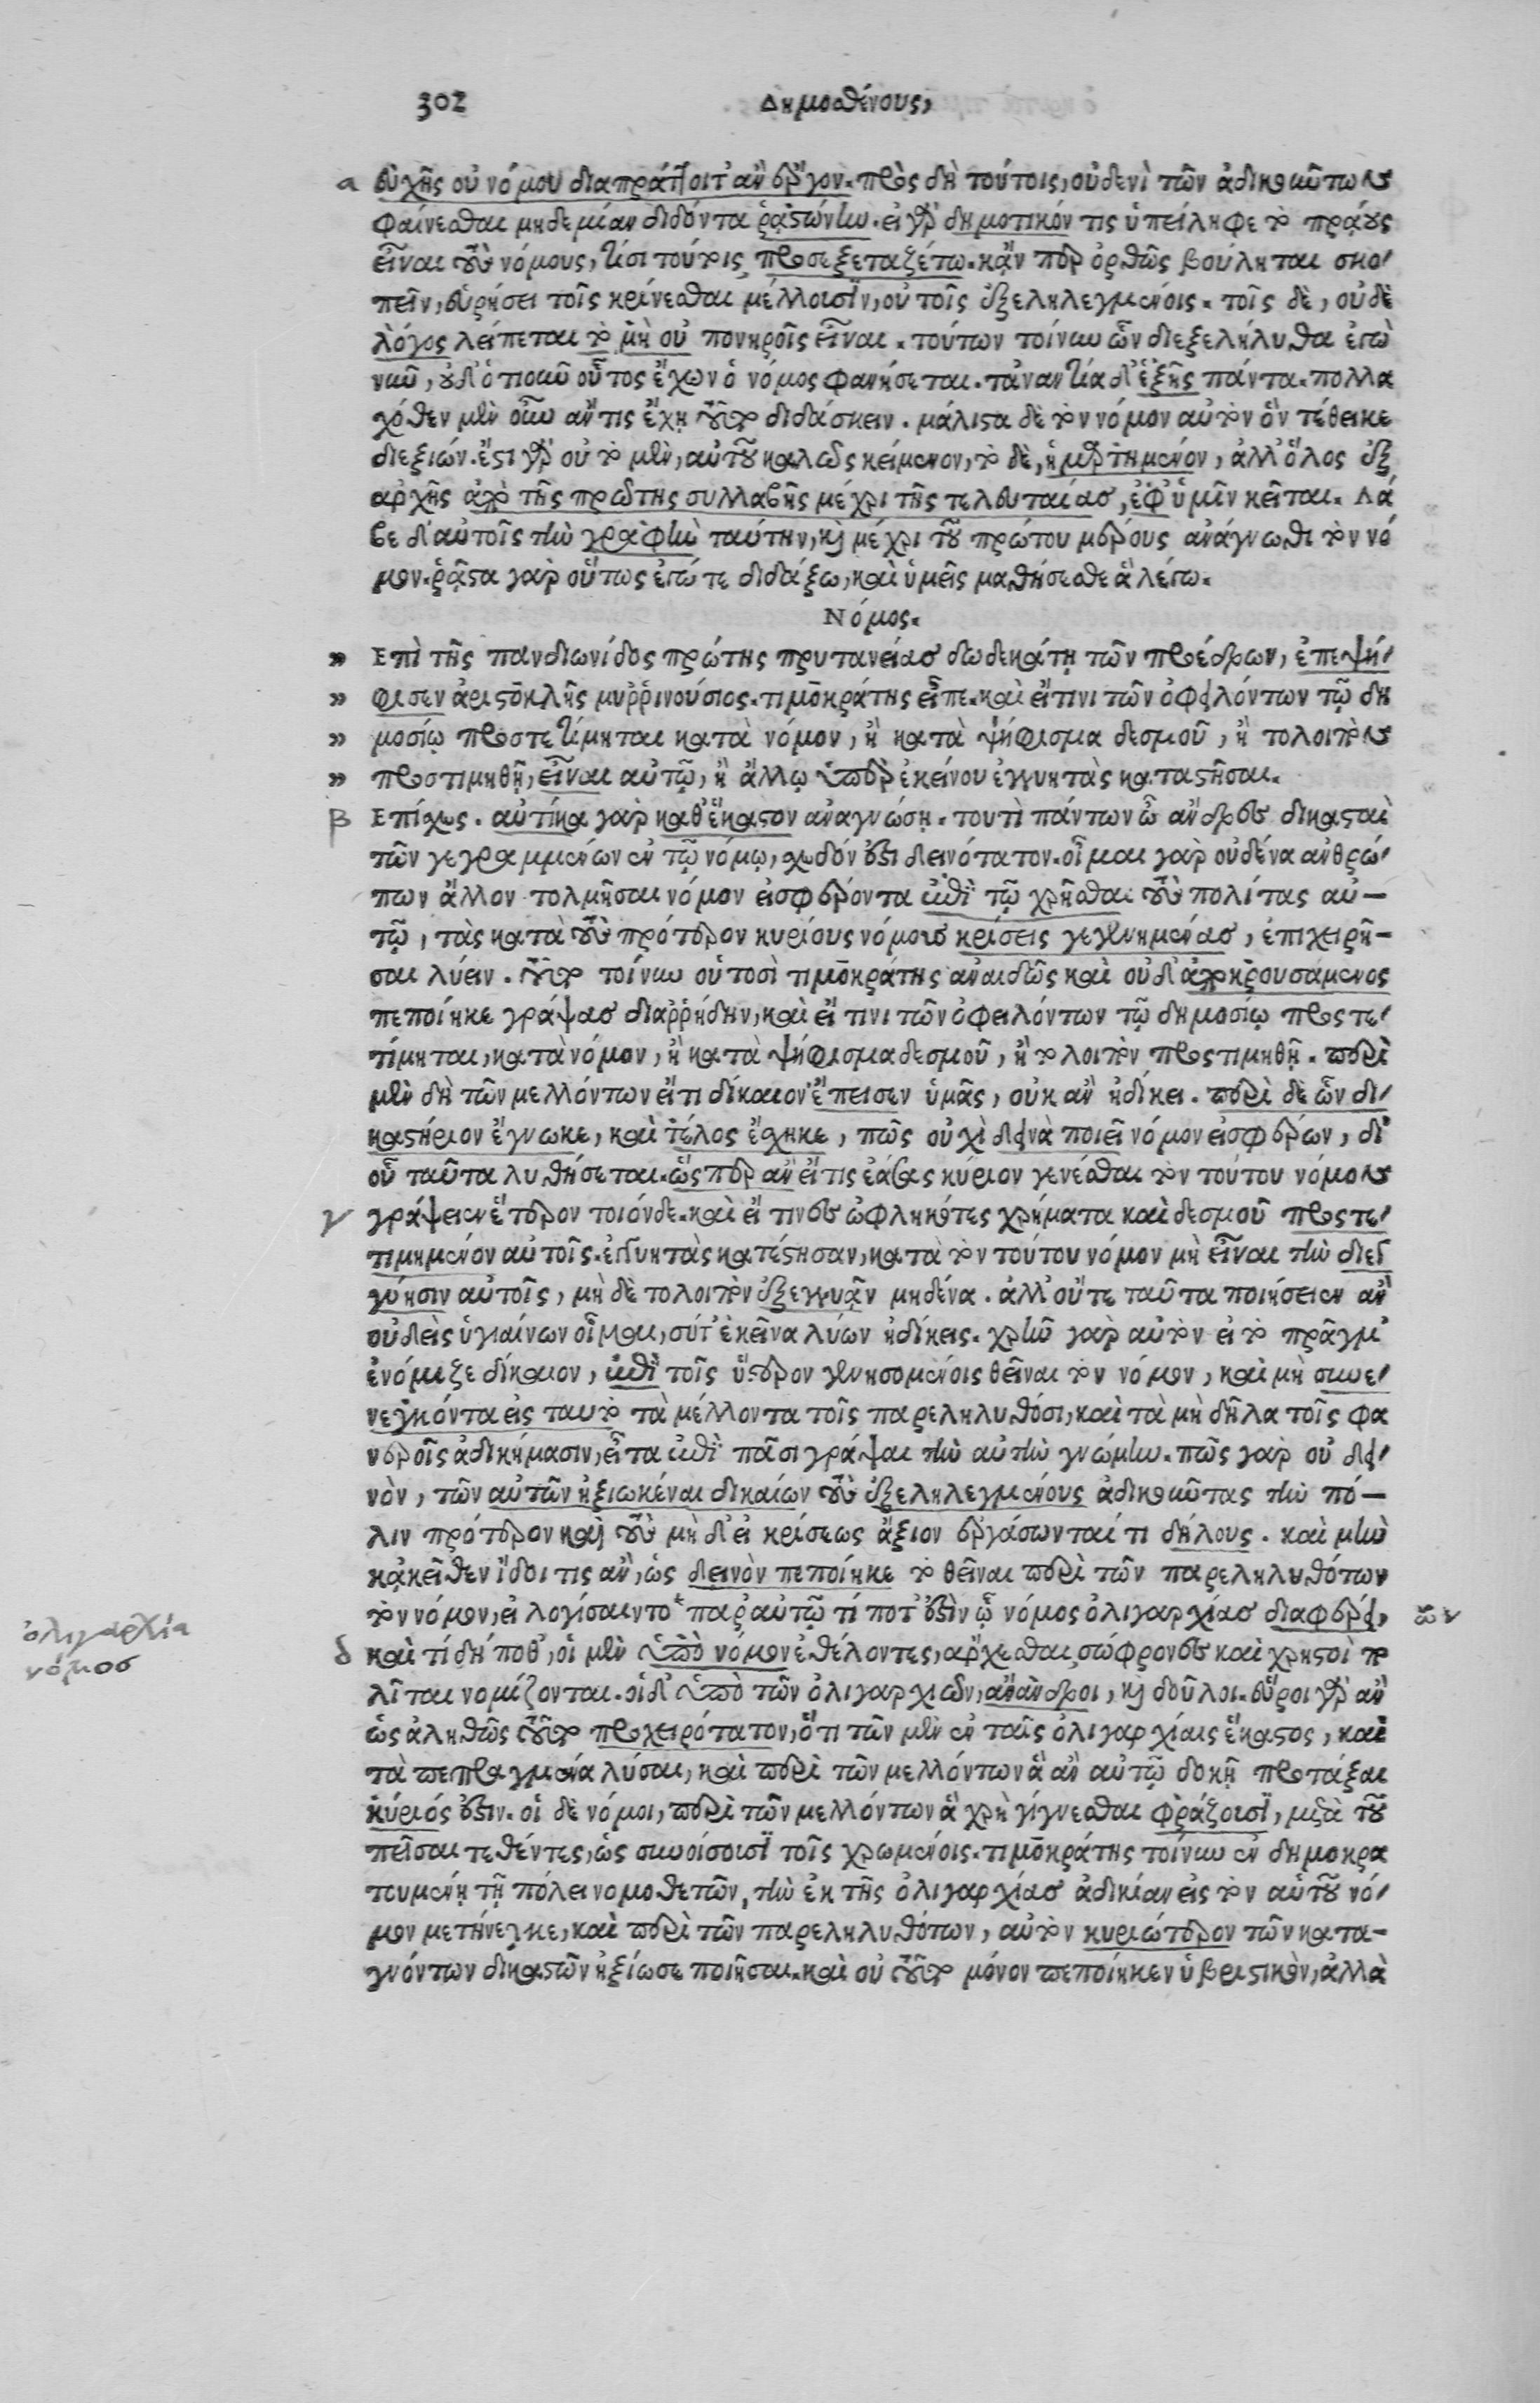 302 Δημοσθένους,
α εὐχῆς οὐ νόμου διαπράττοιτ' ἂν ἔργον. πρὸς δὴ τούτοις, οὐδενὶ τῶν ἀδικούντων
φαίνεσθαι μηδεμίαν διδόντα ῥᾳστώνην. εἰ γὰρ δημοτικόν τις ὑπείληφε τὸ πράους
εἶναι τοὺς νόμους, τίσι τούτοις προσεξεταζέτω. κἄν περ ὀρθῶς βούληται σκο-
πεῖν, εὑρήσει τοῖς κρίνεσθαι μέλλουσιν, οὐ τοῖς ἐξεληλεγμένοις. τοῖς δὲ, οὐδὲ
λόγος λείπεται τὸ μὴ οὐ πονηροῖς εἶναι. τούτων τοίνυν ὧν διεξελήλυθα ἐγὼ
νῦν, οὐδ' ὁτιοῦν οὗτος ἔχων ὁ νόμος φανήσεται. τἀναντία δ' ἑξῆς πάντα. πολλα
χόθεν μὲν οὖν ἄν τις ἔχῃ τοῦτο διδάσκειν. μάλιστα δὲ τὸν νόμον αὐτὸν ὃν τέθεικε
διεξιών. ἔστι γὰρ οὐ τὸ μὲν, αὐτοῦ καλῶς κείμενον, τὸ δὲ, ἡμαρτημένον, ἀλλ' ὅλος ἐξ
ἀρχῆς ἀπὸ τῆς πρώτης συλλαβῆς μέχρι τῆς τελευταίας, ἐφ' ὑμῖν κεῖται. Λά
βε δ' αὐτοῖς τὴν γραφὴν ταύτην, καὶ μέχρι τοῦ πρώτου μέρους ἀνάγνωθι τὸν νό
μον. ῥᾷστα γὰρ οὕτως ἐγώ τε διδάξω, καὶ ὑμεῖς μαθήσεσθε ἃ λέγω.
Νόμος.
» Επὶ τῆς πανδιονίδος πρώτης πρυτανείας δωδεκάτῃ τῶν προέδρων, ἐπεψή-
» φισεν ἀριστοκλῆς μυῤῥινούσιος. τιμοκράτης εἶπε. καὶ εἴ τινι τῶν ὀφειλόντων τῷ δη
» μοσίῳ προστετίμηται κατὰ νόμον, ἢ κατὰ ψήφισμα δεσμοῦ, ἢ τολοιπὸν
» προστιμηθῇ, εἶναι αὐτῷ, ἢ ἄλλῳ ὑπὲρ ἐκείνου ἐγγυητὰς καταστῆσαι.
β Επίσχες. αὐτίκα γὰρ καθ' ἕκαστον ἀναγνώσῃ. τουτὶ πάντων ὦ ἄνδρες δικασταὶ
τῶν γεγραμμένων ἐν τῷ νόμῳ, σχεδόν ἐστι δεινότατον. οἶμαι γὰρ οὐδένα ἀνθρώ-
πων ἄλλον τολμῆσαι νόμον εἰσφέροντα ἐπὶ τῷ χρῆσθαι τοὺς πολίτας αὐ-
τῷ, τὰς κατὰ τοὺς πρότερον κυρίους νόμους κρίσεις γεγενημένας, ἐπιχειρῆ-
σαι λύειν. τοῦτο τοίνυν οὑτοσὶ τιμοκράτης ἀναιδῶς καὶ οὐδ' ἀποκρουσάμενος
πεποίηκε γράψας διαῤῥήδην, καὶ εἴ τινι τῶν ὀφειλόντων τῷ δημοσίῳ προστε-
τίμηται, κατὰ νόμον, ἢ κατὰ ψήφισμα δεσμοῦ, ἢ τολοιπὸν προστιμηθῇ. περὶ
μὲν δὴ τῶν μελλόντων εἴ τι δίκαιον ἔπεισεν ὑμᾶς, οὐκ ἂν ἠδίκει. περὶ δὲ ὧν δι-
καστήριον ἔγνωκε, καὶ τέλος ἔσχηκε, πῶς οὐχὶ δεινὰ ποιεῖ νόμον εἰσφέρων, δι'
οὗ ταῦτα λυθήσεται. ὥσπερ ἂν εἴ τις ἐάσας κύριον γενέσθαι τὸν τούτου νόμον
γ γράψειεν ἕτερον τοιόνδε. καὶ εἴ τινες ὠφληκότες χρήματα καὶ δεσμοῦ προστε-
τιμημένον αὐτοῖς. ἐγγυητὰς κατέστησαν, κατὰ τὸν τούτου νόμον μὴ εἶναι τὴν διεγ
γύησιν αὐτοῖς, μὴ δὲ τολοιπὸν ἐξεγγυᾷν μηδένα. ἀλλ' οὔτε ταῦτα ποιήσειεν ἂν
οὐδεὶς ὑγιαίνων οἶμαι, σύτ' ἐκεῖνα λύων ἠδίκεις. χρῆν γὰρ αὐτὸν εἰ τὸ πρᾶγμ'
ἐνόμιζε δίκαιον, ἐπὶ τοῖς ὕστερον γενησομένοις θεῖναι τὸν νόμον, καὶ μὴ συνε-
νεγκόντα εἰς ταυτὸ τὰ μέλλοντα τοῖς παρεληλυθόσι, καὶ τὰ μὴ δῆλα τοῖς φα
νεροῖς ἀδικήμασιν, εἶτα ἐπὶ πᾶσι γράψαι τὴν αὐτὴν γνώμην. πῶς γὰρ οὐ δει-
νὸν, τῶν αὐτῶν ἠξιωκέναι δικαίων τοὺς ἐξεληλεγμένους ἀδικοῦντας τὴν πό-
λιν πρότερον καὶ τοὺς μὴ δ' εἰ κρίσεως ἄξιον ἐργάσωνταί τι δήλους. καὶ μὴν
κἀκεῖθεν ἴδοι τις ἂν, ὡς δεινὸν πεποίηκε τὸ θεῖναι περὶ τῶν παρεληλυθότων
τὸν νόμον, εἰ λογίσαιντο* παρ' αὐτῷ τί ποτ' ἐστὶν ᾧ νόμος ὀλιγαρχίας διαφέρει, ὧν
ὀλιγαρχία
νόμος
δ καὶ τί δή ποθ', οἱ μὲν ὑπὸ νόμον ἐθέλοντες, ἄρχεσθαι, σώφρονες καὶ χρηστοὶ πο
λῖται νομίζονται. οἱ δ' ὑπὸ τῶν ὀλιγαρχιῶν, ἄνανδροι, καὶ δοῦλοι. εὕροι γὰρ ἂν
ὡς ἀληθῶς τοῦτο προχειρότατον, ὅτι τῶν μὲν ἐν ταῖς ὀλιγαρχίαις ἕκαστος, καὶ
τὰ πεπραγμένα λύσαι, καὶ περὶ τῶν μελλόντων ἃ ἂν αὐτῷ δοκῇ προστάξαι
κύριός ἐστιν. οἱ δὲ νόμοι, περὶ τῶν μελλόντων ἃ χρὴ γίγνεσθαι φράζουσι, μετὰ τοῦ
πεῖσαι τεθέντες, ὡς συνοίσουσι τοῖς χρωμένοις. τιμοκράτης τοίνυν ἐν δημοκρα
τουμένῃ τῇ πόλει νομοθετῶν, τὴν ἐκ τῆς ὀλιγαρχίας ἀδικίαν εἰς τὸν αὑτοῦ νό-
μον μετήνεγκε, καὶ περὶ τῶν παρεληλυθότων, αὑτὸν κυριώτερον τῶν κατα-
γνόντων δικαστῶν ἠξίωσε ποιῆσαι. καὶ οὐ τοῦτο μόνον πεποίηκεν ὑβριστικὸν, ἀλλὰ